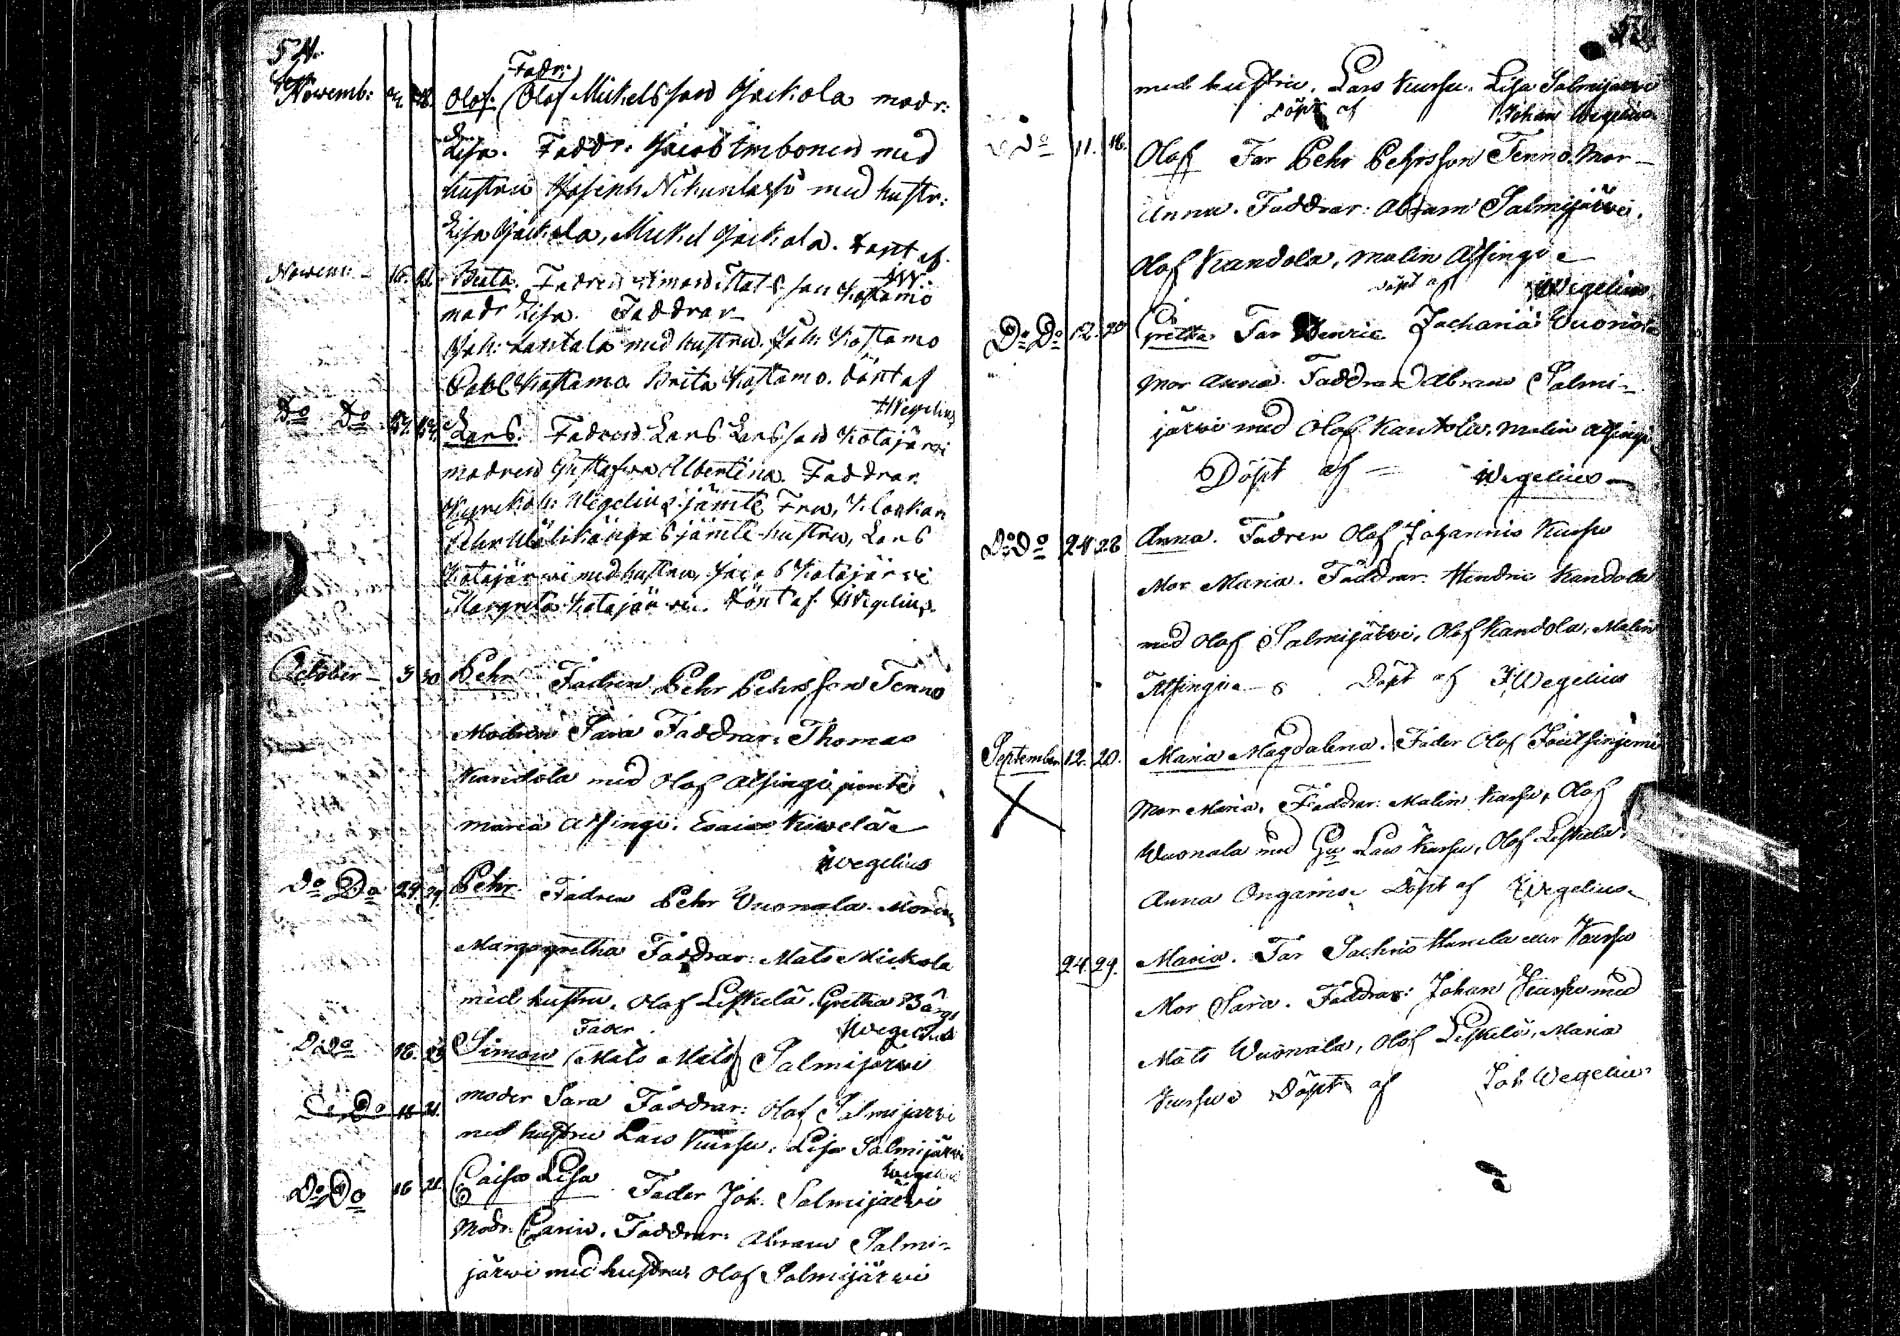 54.
Novemb: Olof. Fadr: Olof Mickelsson Jackola modr:
Lisa. Faddr: Jacob Imbonen med
hustru Joseph med hustr:
Lisa Jackola, Mickel Jackola. döpt af
JW.
Novem: 16. 21. Brita. Fadren Simon Matsson Kostamo
modr Lisa. Faddrar
Joh: Lantala med hustru. Joh: Kostamo
Påhl Kostamo. Brita Kostamo. döpt af
JWegelius
Do Do Lars. Fadren Lars Larsson Kotajärvi
modren Gustafva Albertina. Faddrar
Wegelius jämte Fru, Klockan
Pehr jämte hustru, Lars
Kotajärvi med hustru, Jacob Kotajärvi
Margreta Kotajärvi. döpt af JWegelius
October 3 30 Pehr Fadren Pehr Pehrsson Tenno
Modren Sara Faddrar: Thomas
Kandola med Olof Alsingi jemte
Maria Alsingi. Esaias Kiwelä
JWegelius
Do Do 24. 29 Pehr. Fadren Pehr Vuonala. Modren
Margagretha Faddrar: Mats Mickola
med hustru. Olof Leskelä. Gretha Bärgs
JWegelius
Do Do 16. 23 Simon Fader Mats Mats Salmijärvi
moder Sara Faddrar: Olof Salmijarvi
Do Do 16 21.
med hustru Lars Kursu. Lisa Salmijärvi
Wegelius
Do Do 16 21. Caisa Lisa Fader Joh. Salmijärvi
Modr. Carin. Faddrar: Abram Salmi-
järvi med hustru Olof Salmijärvi
med hustru. Lars Kursu. Lisa Salmijarvi
Döpt af Johan Wegelius
Do 11. 18. Olof Far Pehr Pehrsson Tenno. Mor
Anna. Faddrar: Abram Salmijärvi.
Olof Kandola, Malin Alsingi
Döpt af JWegelius
Do Do 12. 20 Gretha Far Henric Zacharias Vuonola
Mor Anna. Faddrar Abram Salmi-
järvi med Olof Kantola. Malin Alsingi
Döpt af Wegelius
Do Do 24 28 Anna. Fadren Olof Johannis Kursu
Mor Maria. Faddrar: Hendric Kandola
med Olof Salmijärvi, Olof Kandola, Malin
Alsingi Döpt af JWegelius
September 12. 20. Maria Magdalena. Fader Olof
Mor Maria. Faddrar: Malin Kursu, Olof
X
Wuonala med Lars Kursu, Olof Leskelä.
Anna Ongamo Döpt af JWegelius
24. 29. Maria. Far Zachris Kursu
Mor Sara. Faddrar: Johan Kursu med
Mats Wuonala, Olof Leskelä, Maria
Kursu Döpt af Joh Wegelius